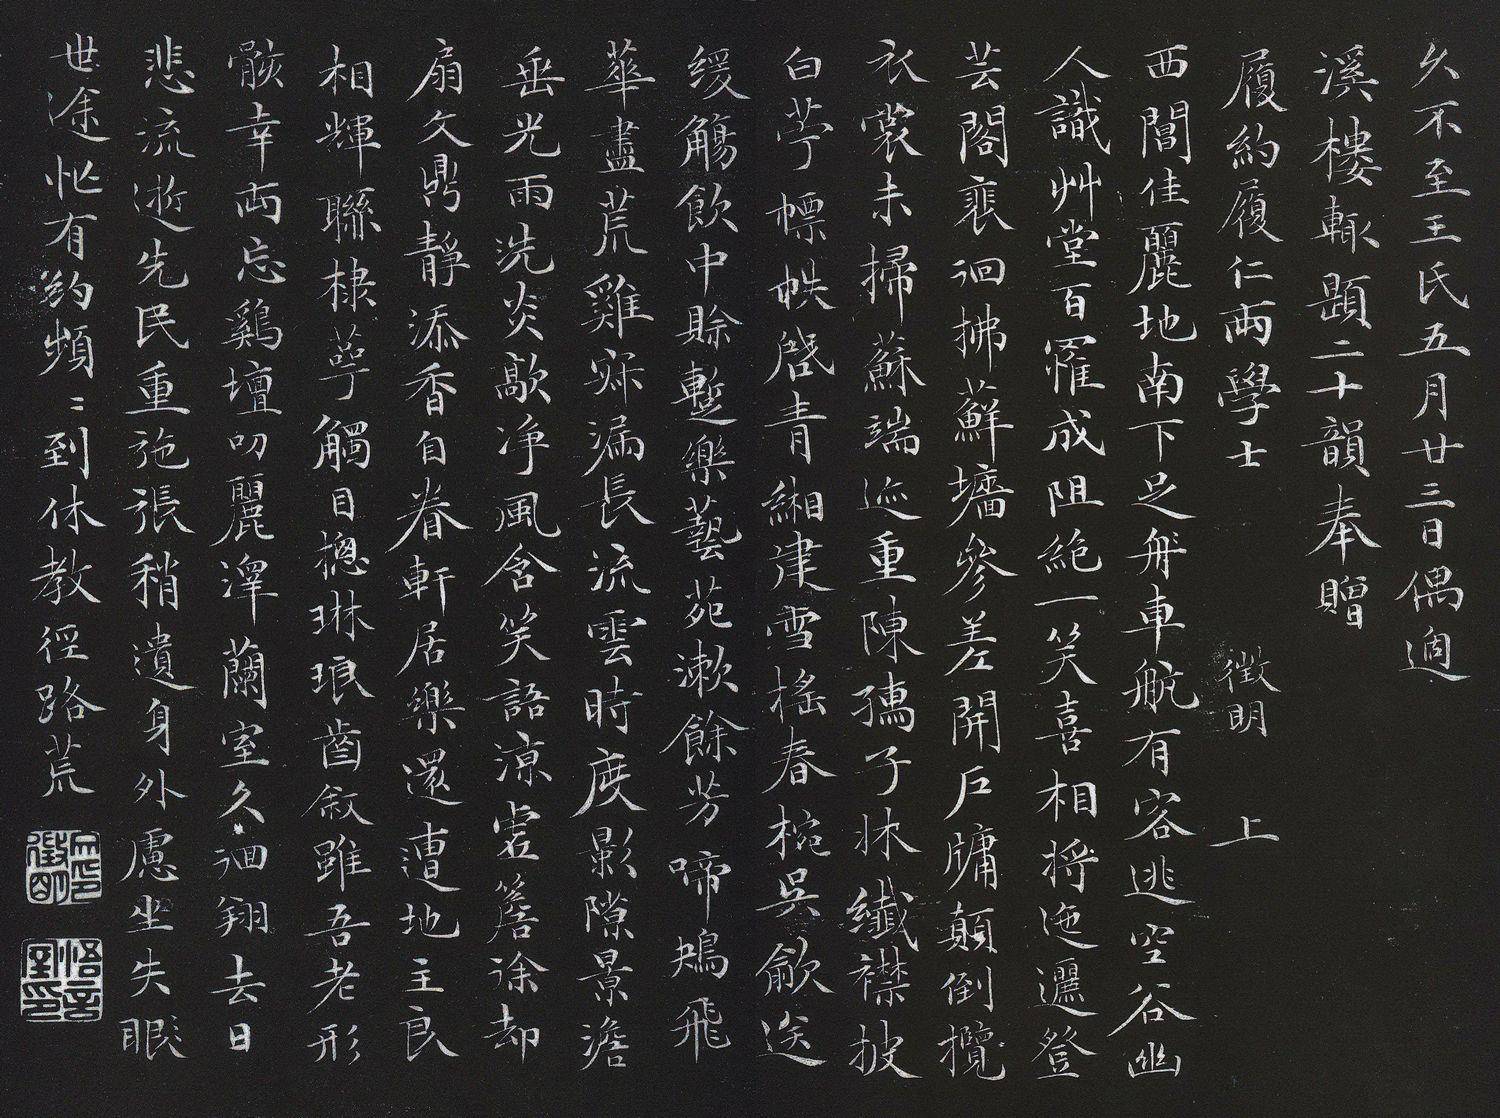 久不至王氏五月廿三日偶適
溪樓輙題二十韻奉贈
履約履仁兩學士
徵明 上
西閶佳麗地南下足舟車航有容逃空谷幽
人識艸堂百罹成阻絶一笑喜相將迤邐登
芸閣裵徊拂蘚墻參差開戶牖顛倒攬
衣裳未掃蘇端迹重陳孺子牀纖襟披
白苧幖帙啓青緗建雪搖春椀吳歈送
缓觴飲中賒蹔樂藝苑漱餘芳啼鴂飛
華盡荒雞寐漏長流雲時度影隙景澹
垂光雨洗炎歊净風含笑語凉虚簷徐却
扇文鼎靜添香自眷軒居樂還遭地主良
相輝聯棣萼觸目摠琳琅齒敘雖吾老形
骸幸両忘鷄壇叨麗澤蘭室久徊翔去日
悲流逝先民重弛張稍遺身外慮坐失眼
世途忙有約頻〻到休教徑路荒
徵明印
悟言室印